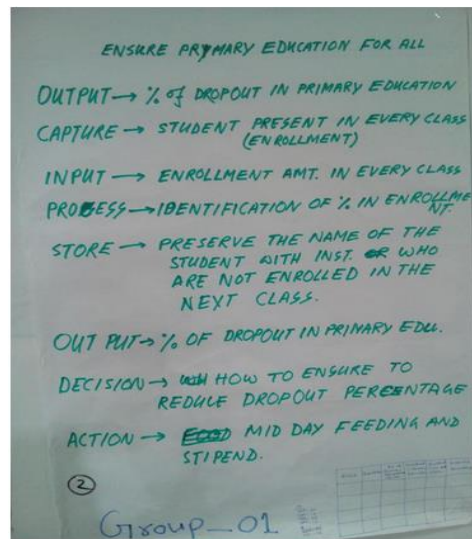 ENSURE PRYMARY EDUCATION FOR ALL
OUTPUT → % of DROPOUT IN PRIMARY EDUCATION
CAPTURE → STUDENT PRESENT IN EVERY CLASS
(ENROLLMENT)
INPUT → ENROLLMENT AMT. IN EVERY CLASS
PROCESS → IDENTIFICATION OF % IN ENROLLME
NT.
STORE → PRESERVE THE NAME OF THE
STUDENT WITH INST. OR WHO
ARE NOT ENROLLED IN THE
NEXT CLASS.
OUT PUT → % OF DROPOUT IN PRIMARY EDU.
DECISION → HOW TO ENSURE TO
REDUCE DROPOUT PERCENTAGE
ACTION → MID DAY FEEDING AND
STIPEND.
2
Group-01